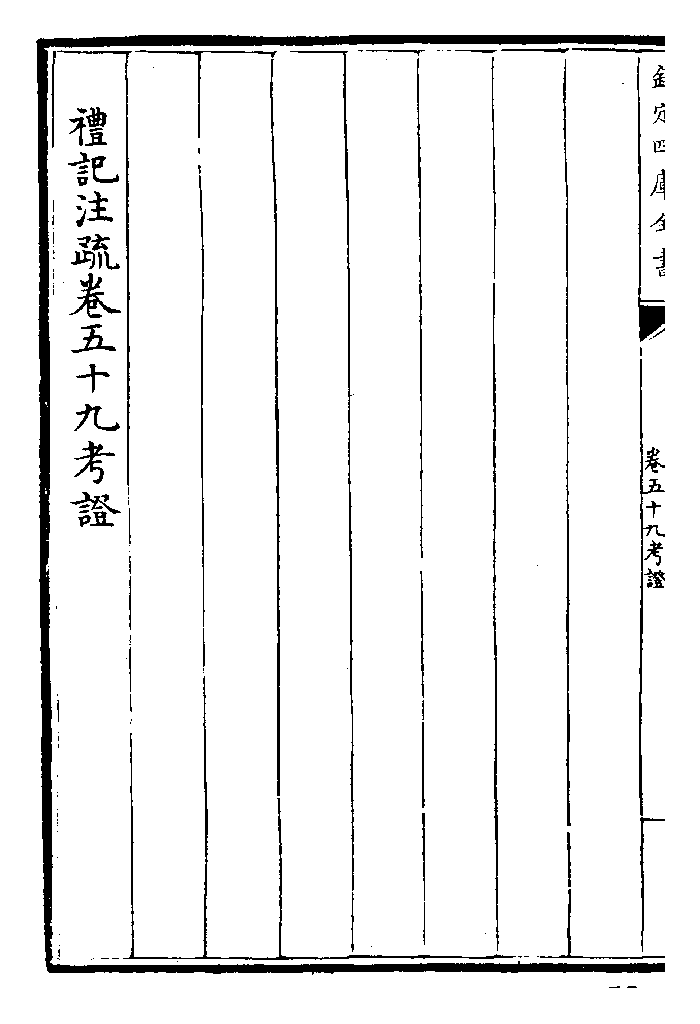 欽定四庫全書
卷五十九考證
禮記注疏卷五十九考證